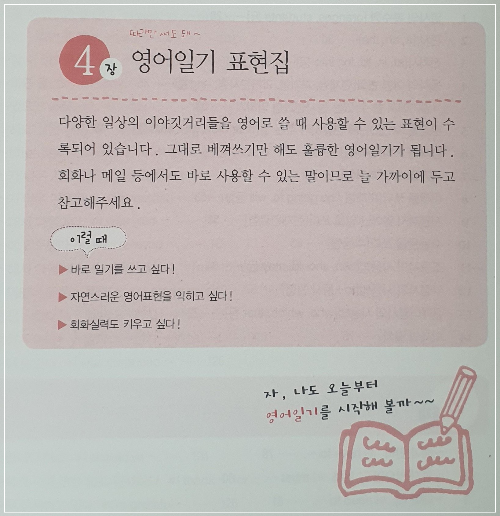 따라만 써도 돼~
4장 영어일기 표현집
다양한 일상의 이야깃거리들을 영어로 쓸 때 사용할 수 있는 표현이 수
록되어 있습니다. 그대로 베껴쓰기만 해도 훌륭한 영어일기가 됩니다.
회화나 메일 등에서도 바로 사용할 수 있는 말이므로 늘 가까이에 두고
참고해주세요.
이럴 때
▶ 바로 일기를 쓰고 싶다!
▶ 자연스러운 영어표현을 익히고 싶다!
▶ 회화실력도 키우고 싶다!
자, 나도 오늘부터
영어일기를 시작해 볼까~~